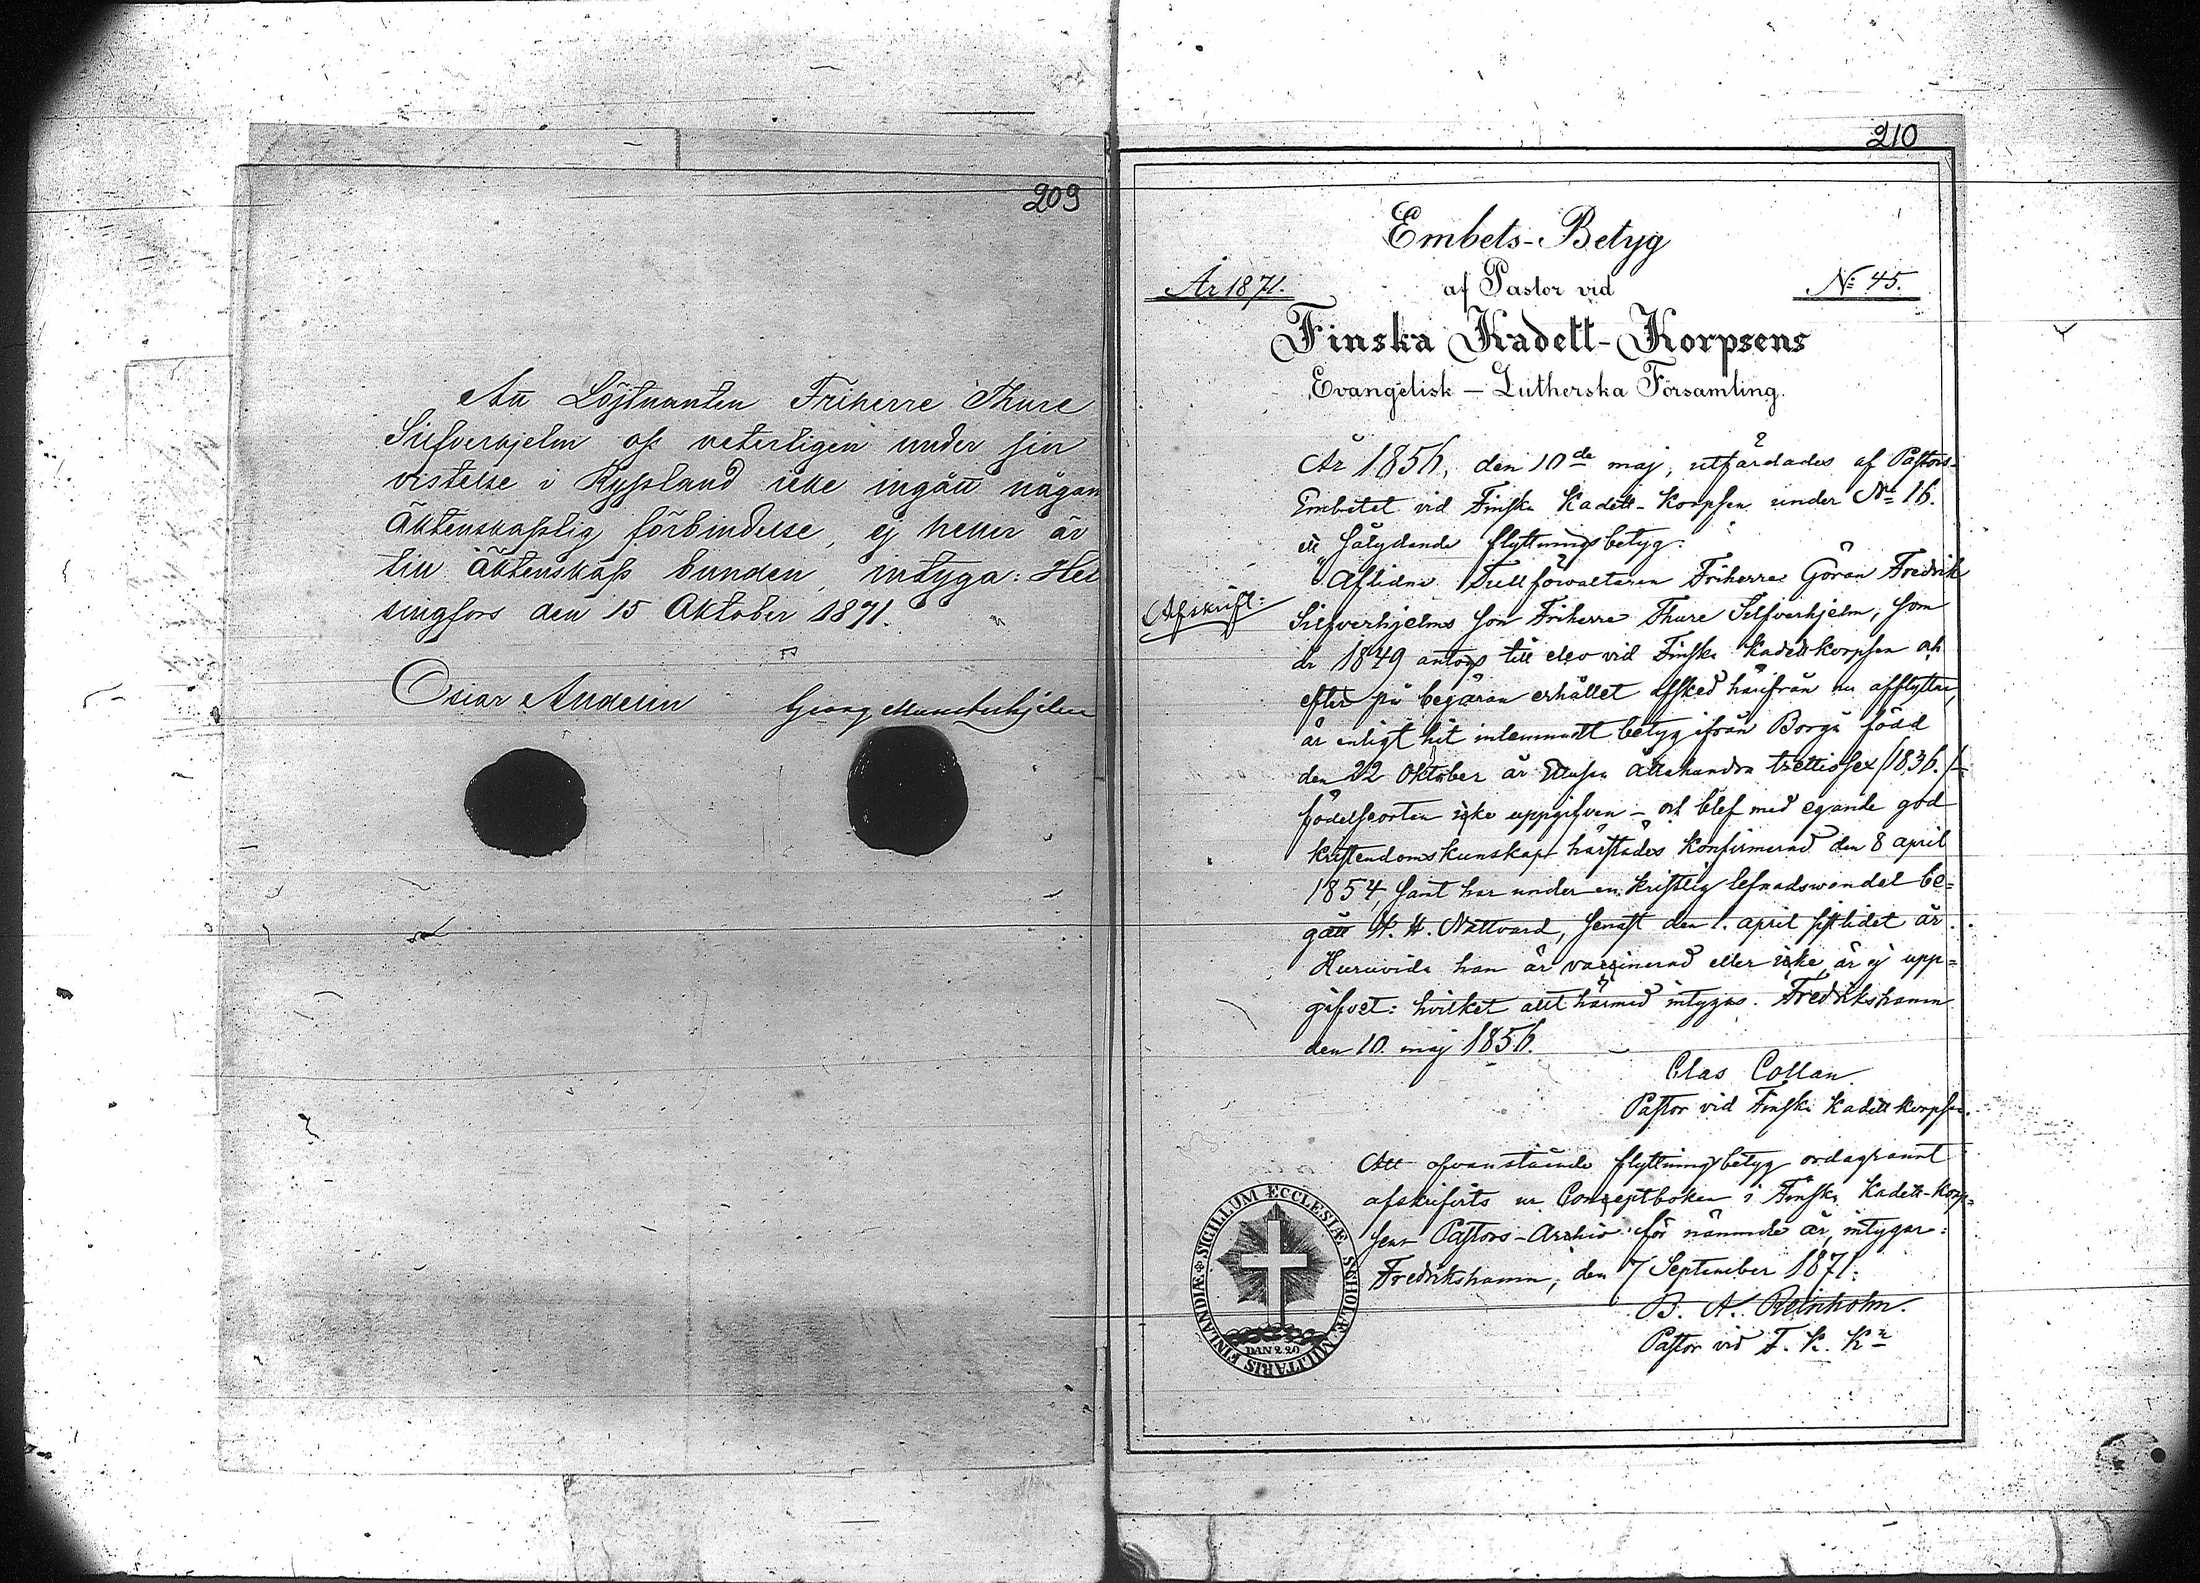 209
Att Löjtnanten Friherre Thure
Silfverhjelm oss veterligen under sin
vistelse i Ryssland icke ingått någon
äktenskapslig förbindelse, ej heller är
till äktenskap bunden, intyga: Hel
singfors den 15 Oktober 1871.
Oscar Anderin Georg Munsterhjelm
210
Embets-Betyg
År 1871. af Pastor vid No 45.
Finska Kadett-Korpsens
Evangelisk – Lutherska Församling.
År 1856, den 10de maj, utfärdades af Pastors-
Embetet vid Finska Kadett-Korpsen under No 16.
ett sålydande flyttningsbetyg:
"Aflidne Tullförvaltaren Friherre Göran Fredrik
Afskrift:
Silfverhjelms son Friherre Thure Silfverhjelm, som
år 1849 antogs till elev vid Finska Kadettkorpsen och
efter på begäran erhållet afsked härifrån nu afflyttar,
är enligt hit inlemnadt betyg ifrån Borgå född
den 22 Oktober år ettusen åttahundra trettiosex (1836.) –
födelseorten icke uppgifven – och blef med egande god
kristendomskunskap härstädes konfirmerad den 8 april
1854, samt har under en kristlig lefnadswandel be=
gått H. H. Nattvard, senast den 1. april sistlidet år.
Huruvida han är vaccinerad eller icke, är ej upp=
gifvet: hvilket allt härmed intygas. Fredrikshamn
den 10. maj 1856.
Clas Collan.
Pastor vid Finska Kadettkorpsen.
Att ofvanstående flyttningsbetyg ordagrannt
afskrifvits ur Conceptboken i Finska Kadett-Korp=
sens Pastors-Archiv för nämnde år, intygar:
Fredrikshamn, den 7 September 1871:
B. A. Reinholm.
Pastor vid F. K. Kn
SIGILLUM ECCLESIÆ SCHOLÆ MILITARIS FINLANDIÆ
DAN 2.20